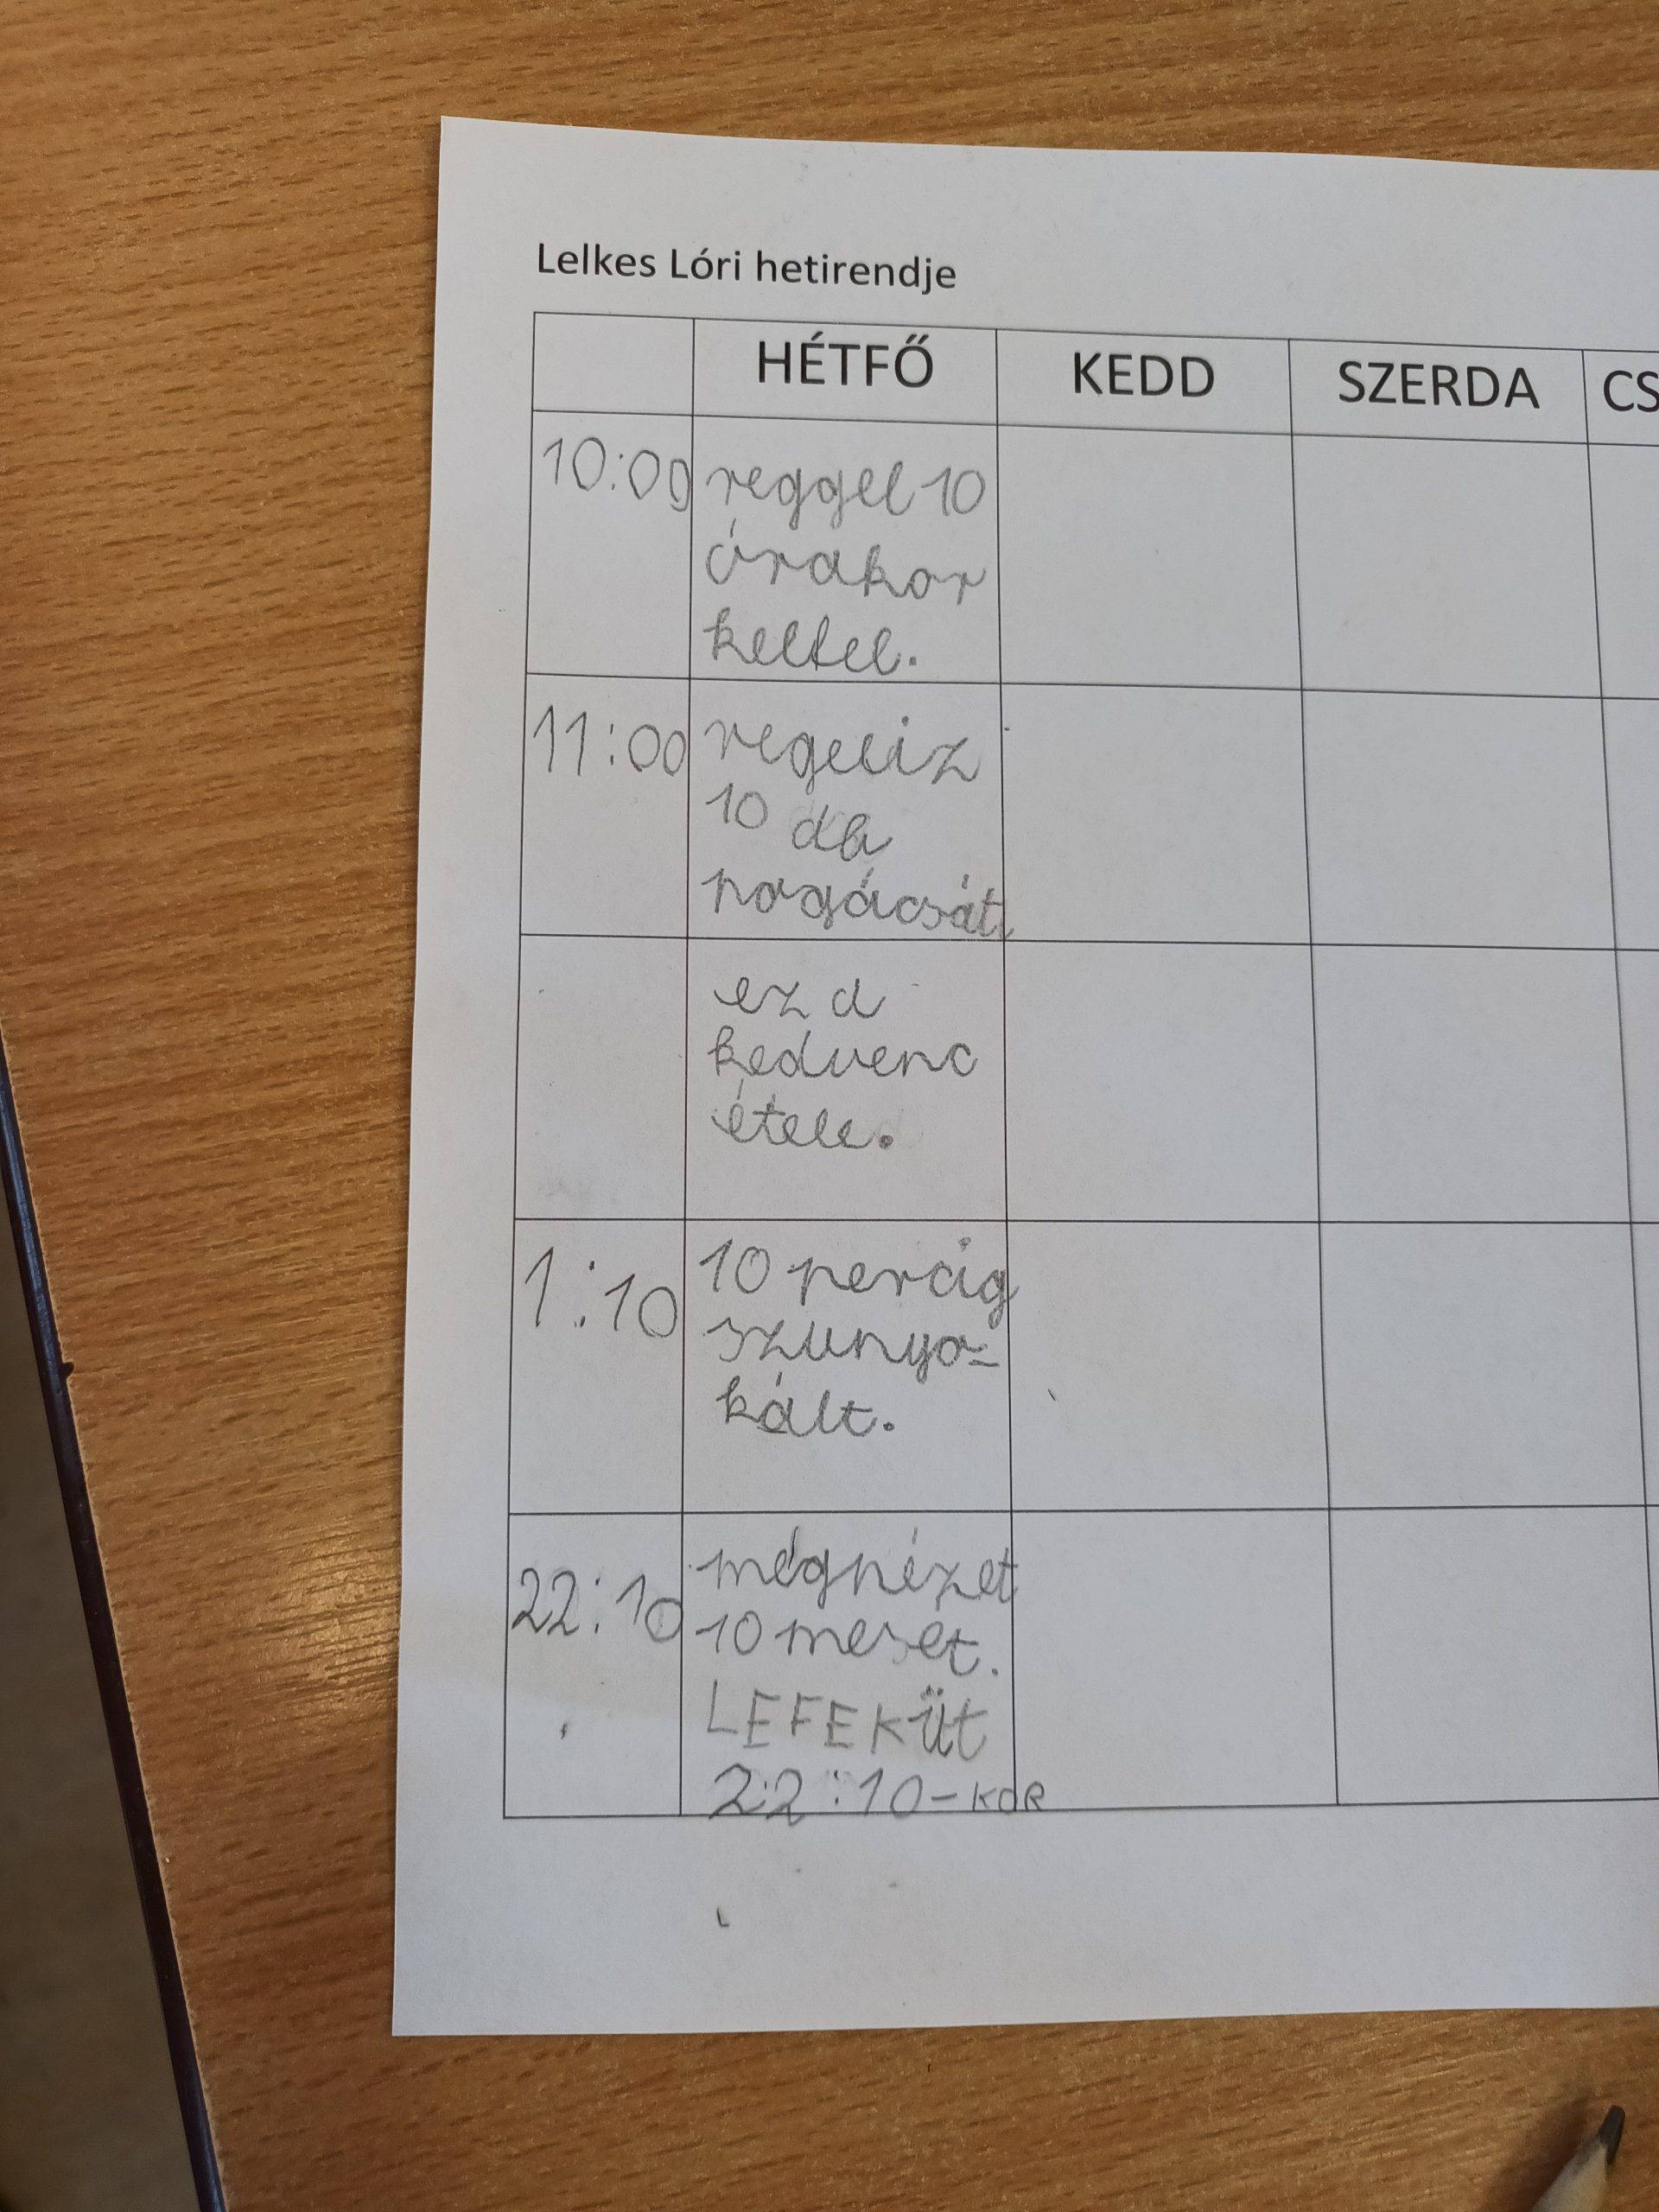 Lelkes Lóri hetirendje
HÉTFŐ KEDD SZERDA CS
10:00 reggel 10
órakor
keltel.
11:00 regeliz
10 db
pogácsát.
ez a
kedvenc
étele.
1:10 10 percig
szunyo=
kált.
22:10 mégnézet
10 mesét.
LEFEKÜt
22:10-KOR